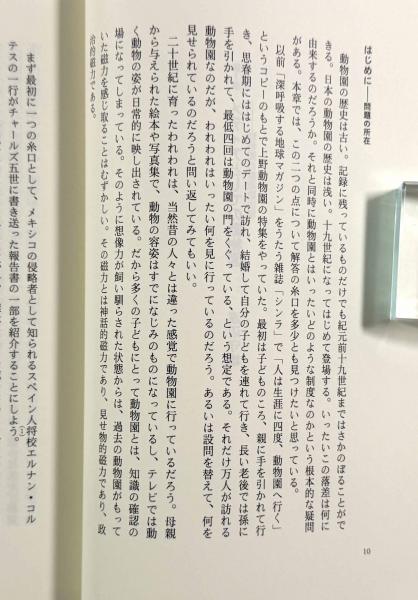 はじめに――問題の所在
動物園の歴史は古い。記録に残っているものだけでも紀元前十九世紀まではさかのぼることがで
きる。日本の動物園の歴史は浅い。十九世紀になってはじめて登場する。いったいこの落差は何に
由来するのだろうか。それと同時に動物園とはいったいどのような制度なのかという根本的な疑問
がある。本章では、この二つの点について解答の糸口を多少とも見つけたいと思っている。
以前「深呼吸する地球マガジン」をうたう雑誌「シンラ」で「人は生涯に四度、動物園へ行く」
というコピーのもとで上野動物園の特集をやっていた。最初は子どものころ、親に手を引かれて行
き、思春期にははじめてのデートで訪れ、結婚して自分の子どもを連れて行き、長い老後では孫に
手を引かれて、最低四回は動物園の門をくぐっている、という想定である。それだけ万人が訪れる
動物園なのだが、われわれはいったい何を見に行っているのだろう。あるいは設問を替えて、何を
見せられているのだろうと問い返してみてもいい。
二十世紀に育ったわれわれは、当然昔の人々とは違った感覚で動物園に行っているだろう。母親
から与えられた絵本や写真集で、動物の容姿はすでになじみのものになっているし、テレビでは動
く動物の姿が日常的に映し出されている。だから多くの子どもにとって動物園とは、知識の確認の
場になってしまっている。そのように想像力が飼い馴らされた状態からは、過去の動物園がもって
いた磁力を感じ取ることはむずかしい。その磁力とは神話的磁力であり、見せ物的磁力であり、政
治的磁力である。
まず最初に一つの糸口として、メキシコの侵略者として知られるスペイン人将校エルナン・コル
テスの一行がチャールズ五世に書き送った報告書(1)の一部を紹介することにしよう。
10